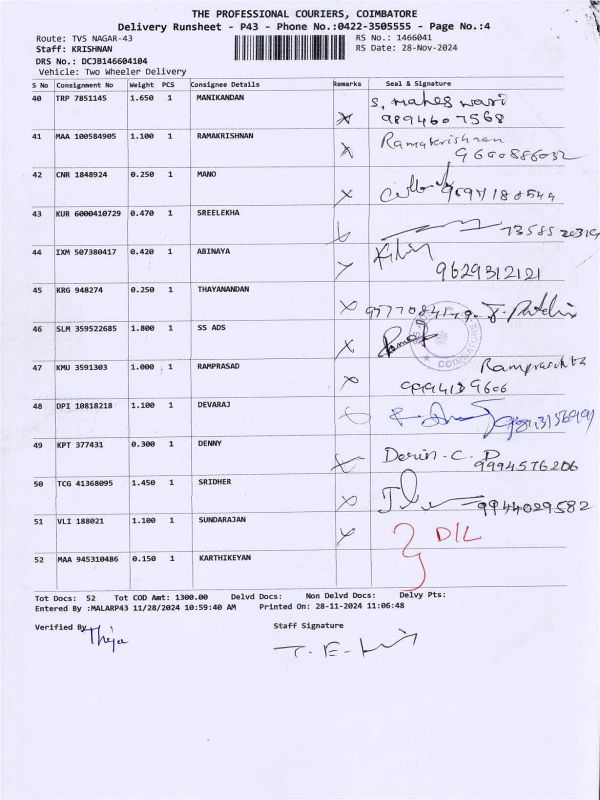 THE PROFESSIONAL COURIERS, COIMBATORE
Delivery Runsheet - P43 - Phone No.:0422-3505555 - Page No.:4
Route: TVS NAGAR-43 RS No.: 1466041
Staff: KRISHNAN RS Date: 28-Nov-2024
DRS No.: DCJB146604104
Vehicle: Two Wheeler Delivery
S No Consignment No Weight PCS Consignee Details Remarks Seal & Signature
40 TRP 7851145 1.650 1 MANIKANDAN S. Maheswari
9894607568
41 MAA 100584905 1.100 1 RAMAKRISHNAN Ramakrishnan
9600886032
42 CNR 1848924 0.250 1 MANO
43 KUR 6000410729 0.470 1 SREELEKHA
44 IXM 507380417 0.420 1 ABINAYA
9629312121
45 KRG 948274 0.250 1 THAYANANDAN
46 SLM 359522685 1.800 1 SS ADS
COIMBATORE
47 KMU 3591303 1.000 1 RAMPRASAD
9994139606
48 DPI 10818218 1.100 1 DEVARAJ
49 KPT 377431 0.300 1 DENNY
9994576206
50 TCG 41368095 1.450 1 SRIDHER 9944029582
51 VLI 188021 1.100 1 SUNDARAJAN D/L
52 MAA 945310486 0.150 1 KARTHIKEYAN
Tot Docs: 52 Tot COD Amt: 1300.00 Delvd Docs: Non Delvd Docs: Delvy Pts:
Entered By :MALARP43 11/28/2024 10:59:40 AM Printed On: 28-11-2024 11:06:48
Verified By Staff Signature